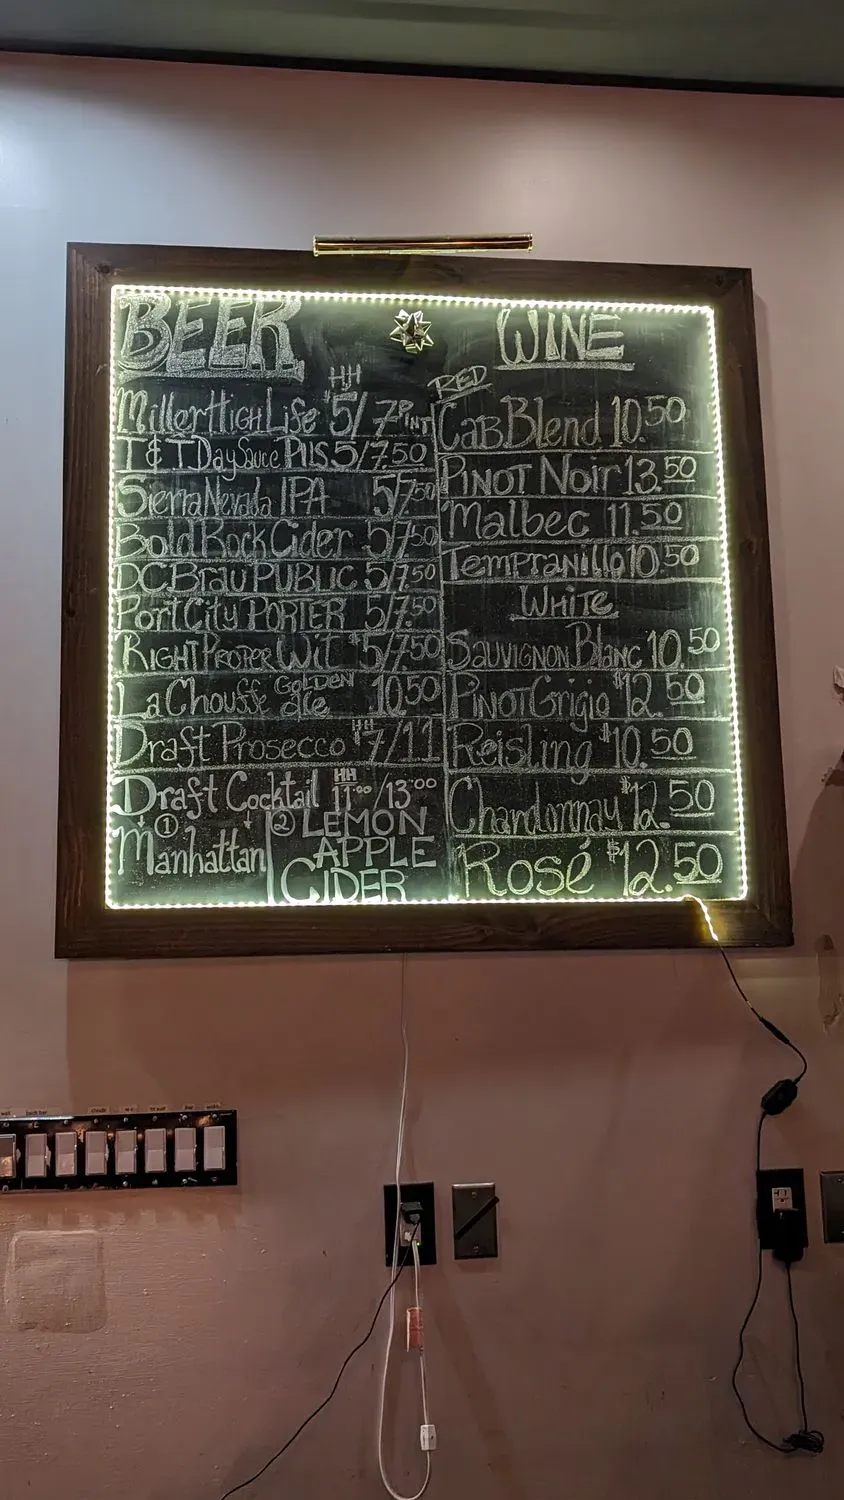 BEER
HH
Miller High Life $5/7 PINT
T & T Day Sauce Pils 5/7.50
Sierra Nevada IPA 5/7.50
Bold Rock Cider 5/7.50
DC Brau PUBLIC 5/7.50
Port City PORTER 5/7.50
Right Proper Wit $5/7.50
La Chouffe GOLDEN ale 10.50
HH
Draft Prosecco $7/11
HH
Draft Cocktail 11.00/13.00
① Manhattan
② LEMON
APPLE
CIDER
WINE
RED
Cab Blend 10.50
Pinot Noir 13.50
Malbec 11.50
Tempranillo 10.50
White
Sauvignon Blanc 10.50
Pinot Grigio $12.50
Reisling $10.50
Chardonnay $12.50
Rosé $12.50